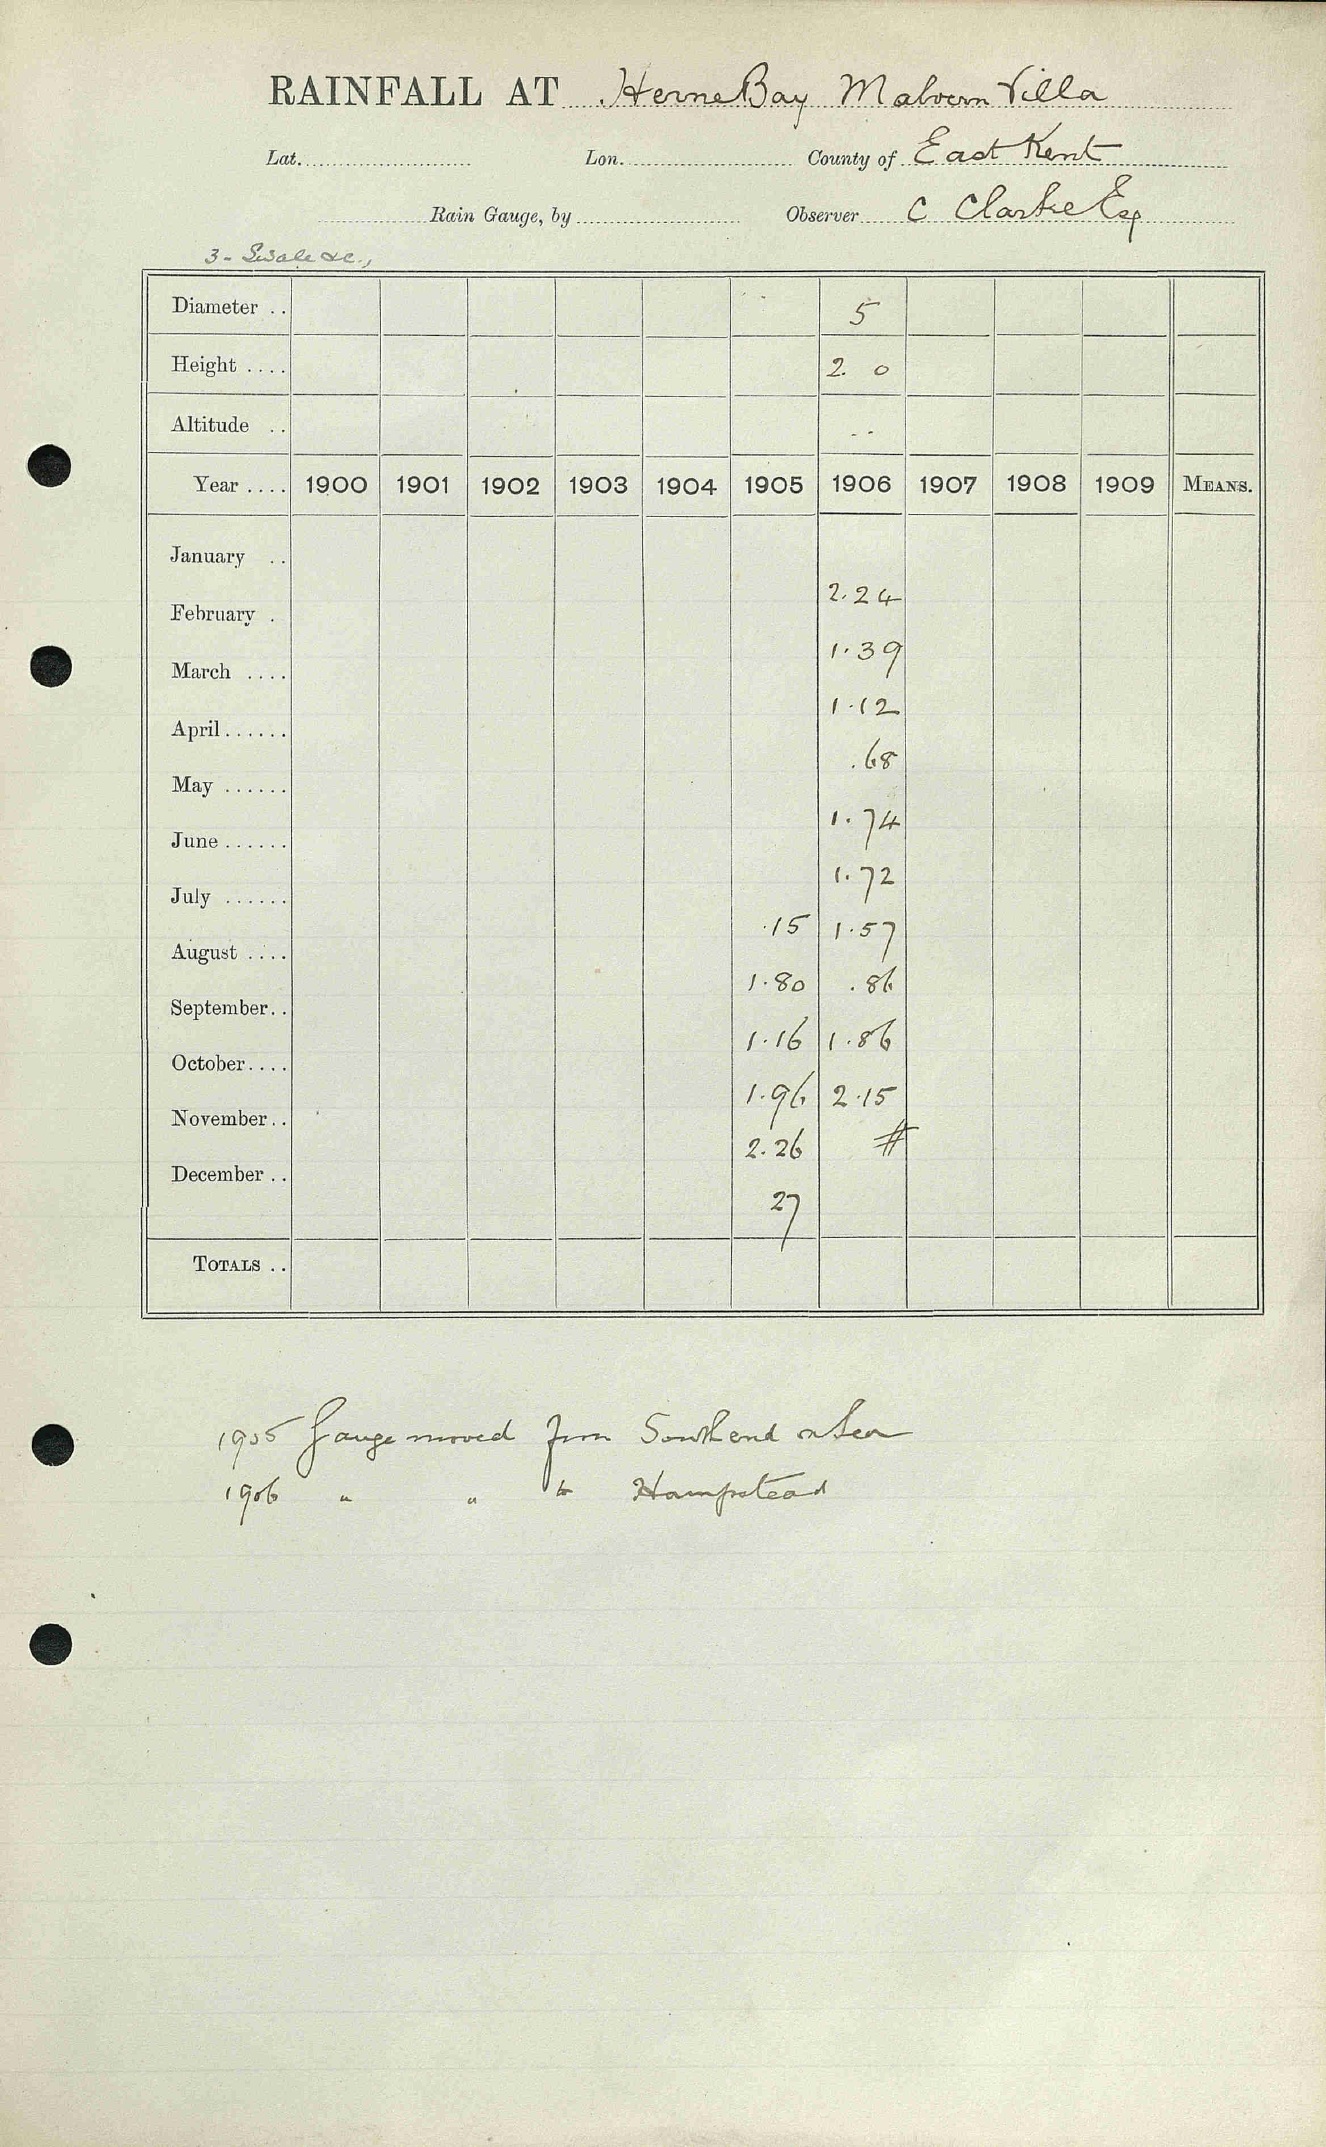 RAINFALL AT Herne Bay Malvern Villa
Lat. Lon. County of East Kent
Rain Gauge, by Observer C Clarke Esq
3 - Swale &c.,
Diameter .. 5
Height .... 2. 0
Altitude .. - -
Year .... 1900 1901 1902 1903 1904 1905 1906 1907 1908 1909 MEANS.
January ..
2.24
February .
1.39
March ....
1.12
April ......
.68
May ......
1.74
June ......
1.72
July ......
.15 1.57
August ....
1.80 .86
September..
1.16 1.86
October....
1.96 2.15
November..
2.26 #
December ..
27
TOTALS ..
1905 Gauge moved from Southend on Sea
1906 " " to Hampstead